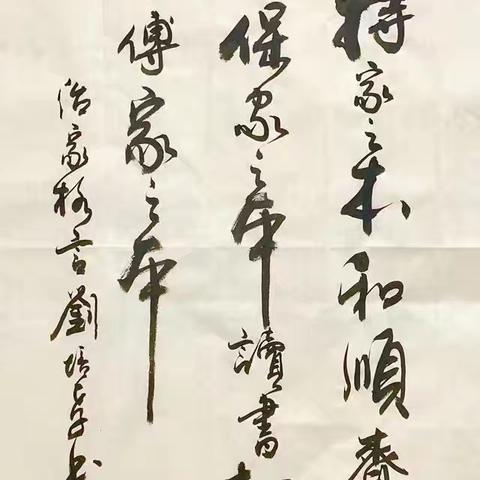 持家之本和順齊
保家之本讀書
傳家之本
治家格言劉培